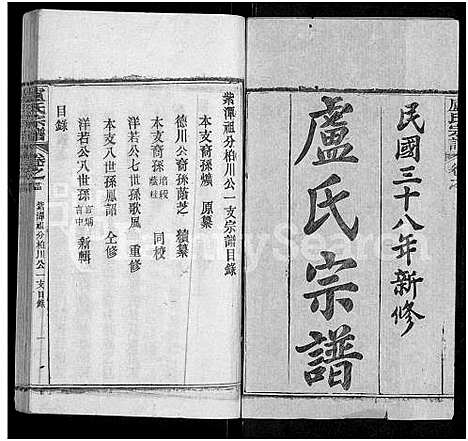 盧氏宗譜 卷之一
民國三十八年新修
盧氏宗譜
紫潭祖分柏川公一支宗譜目錄
本支裔孫爌 原纂
德川公裔孫蔭芝 續纂
本支裔孫 培稷 蔭桂 同校
洋若公七世孫歌風 重修
本支八世孫鳳詔 仝修
洋若公八世孫 言炳 言中 新輯
目錄
盧氏宗譜 卷之一 紫潭祖分柏川公一支目錄 一
FamilySearch